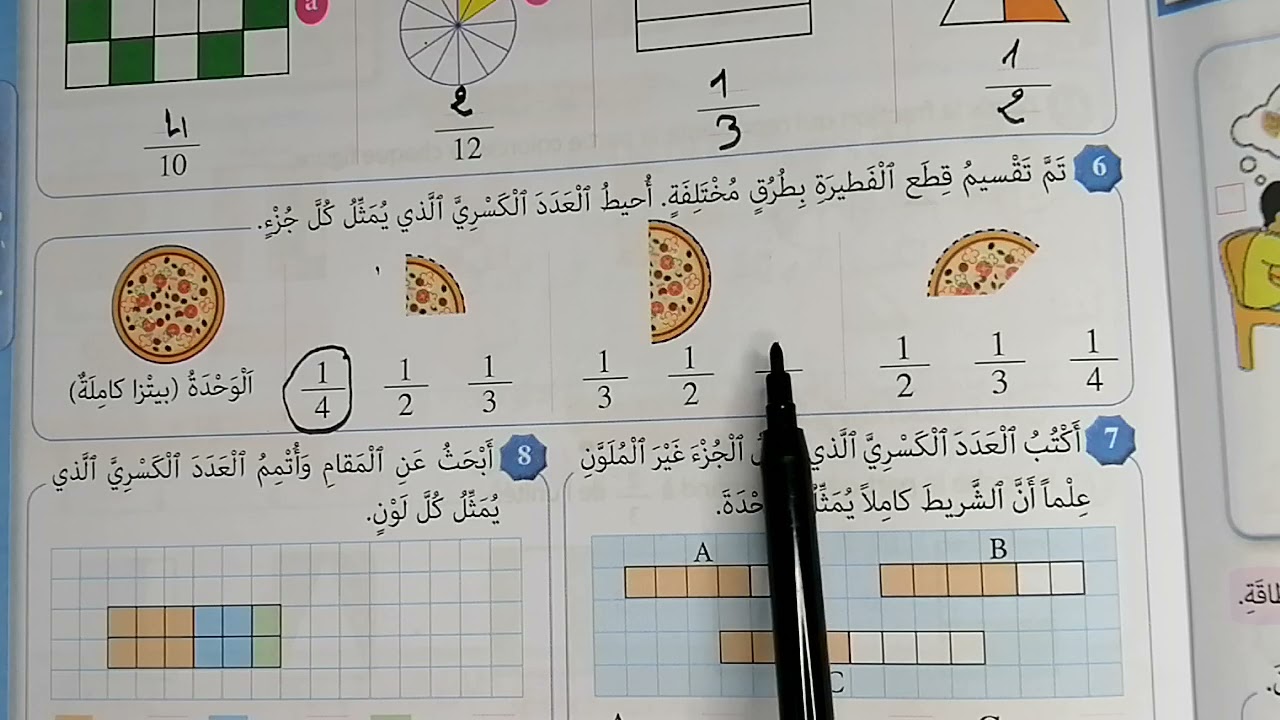 a
4/10
2/12
1/3
1/2
6 تَمَّ تَقْسيمُ قِطَعِ ٱلْفَطيرَةِ بِطُرُقٍ مُخْتَلِفَةٍ. أُحيطُ ٱلْعَدَدَ ٱلْكَسْرِيَّ ٱلَّذي يُمَثِّلُ كُلَّ جُزْءٍ.
اَلْوَحْدَةُ (بيتْزا كامِلَةٌ)
1/4 1/2 1/3
1/3 1/2
1/2 1/3 1/4
7 أَكْتُبُ ٱلْعَدَدَ ٱلْكَسْرِيَّ ٱلَّذي ٱلْجُزْءَ غَيْرَ ٱلْمُلَوَّنِ
عِلْماً أَنَّ ٱلشَّريطَ كامِلاً
A
B
C
8 أَبْحَثُ عَنِ ٱلْمَقامِ وَأُتْمِمُ ٱلْعَدَدَ ٱلْكَسْرِيَّ ٱلَّذي
يُمَثِّلُ كُلَّ لَوْنٍ.